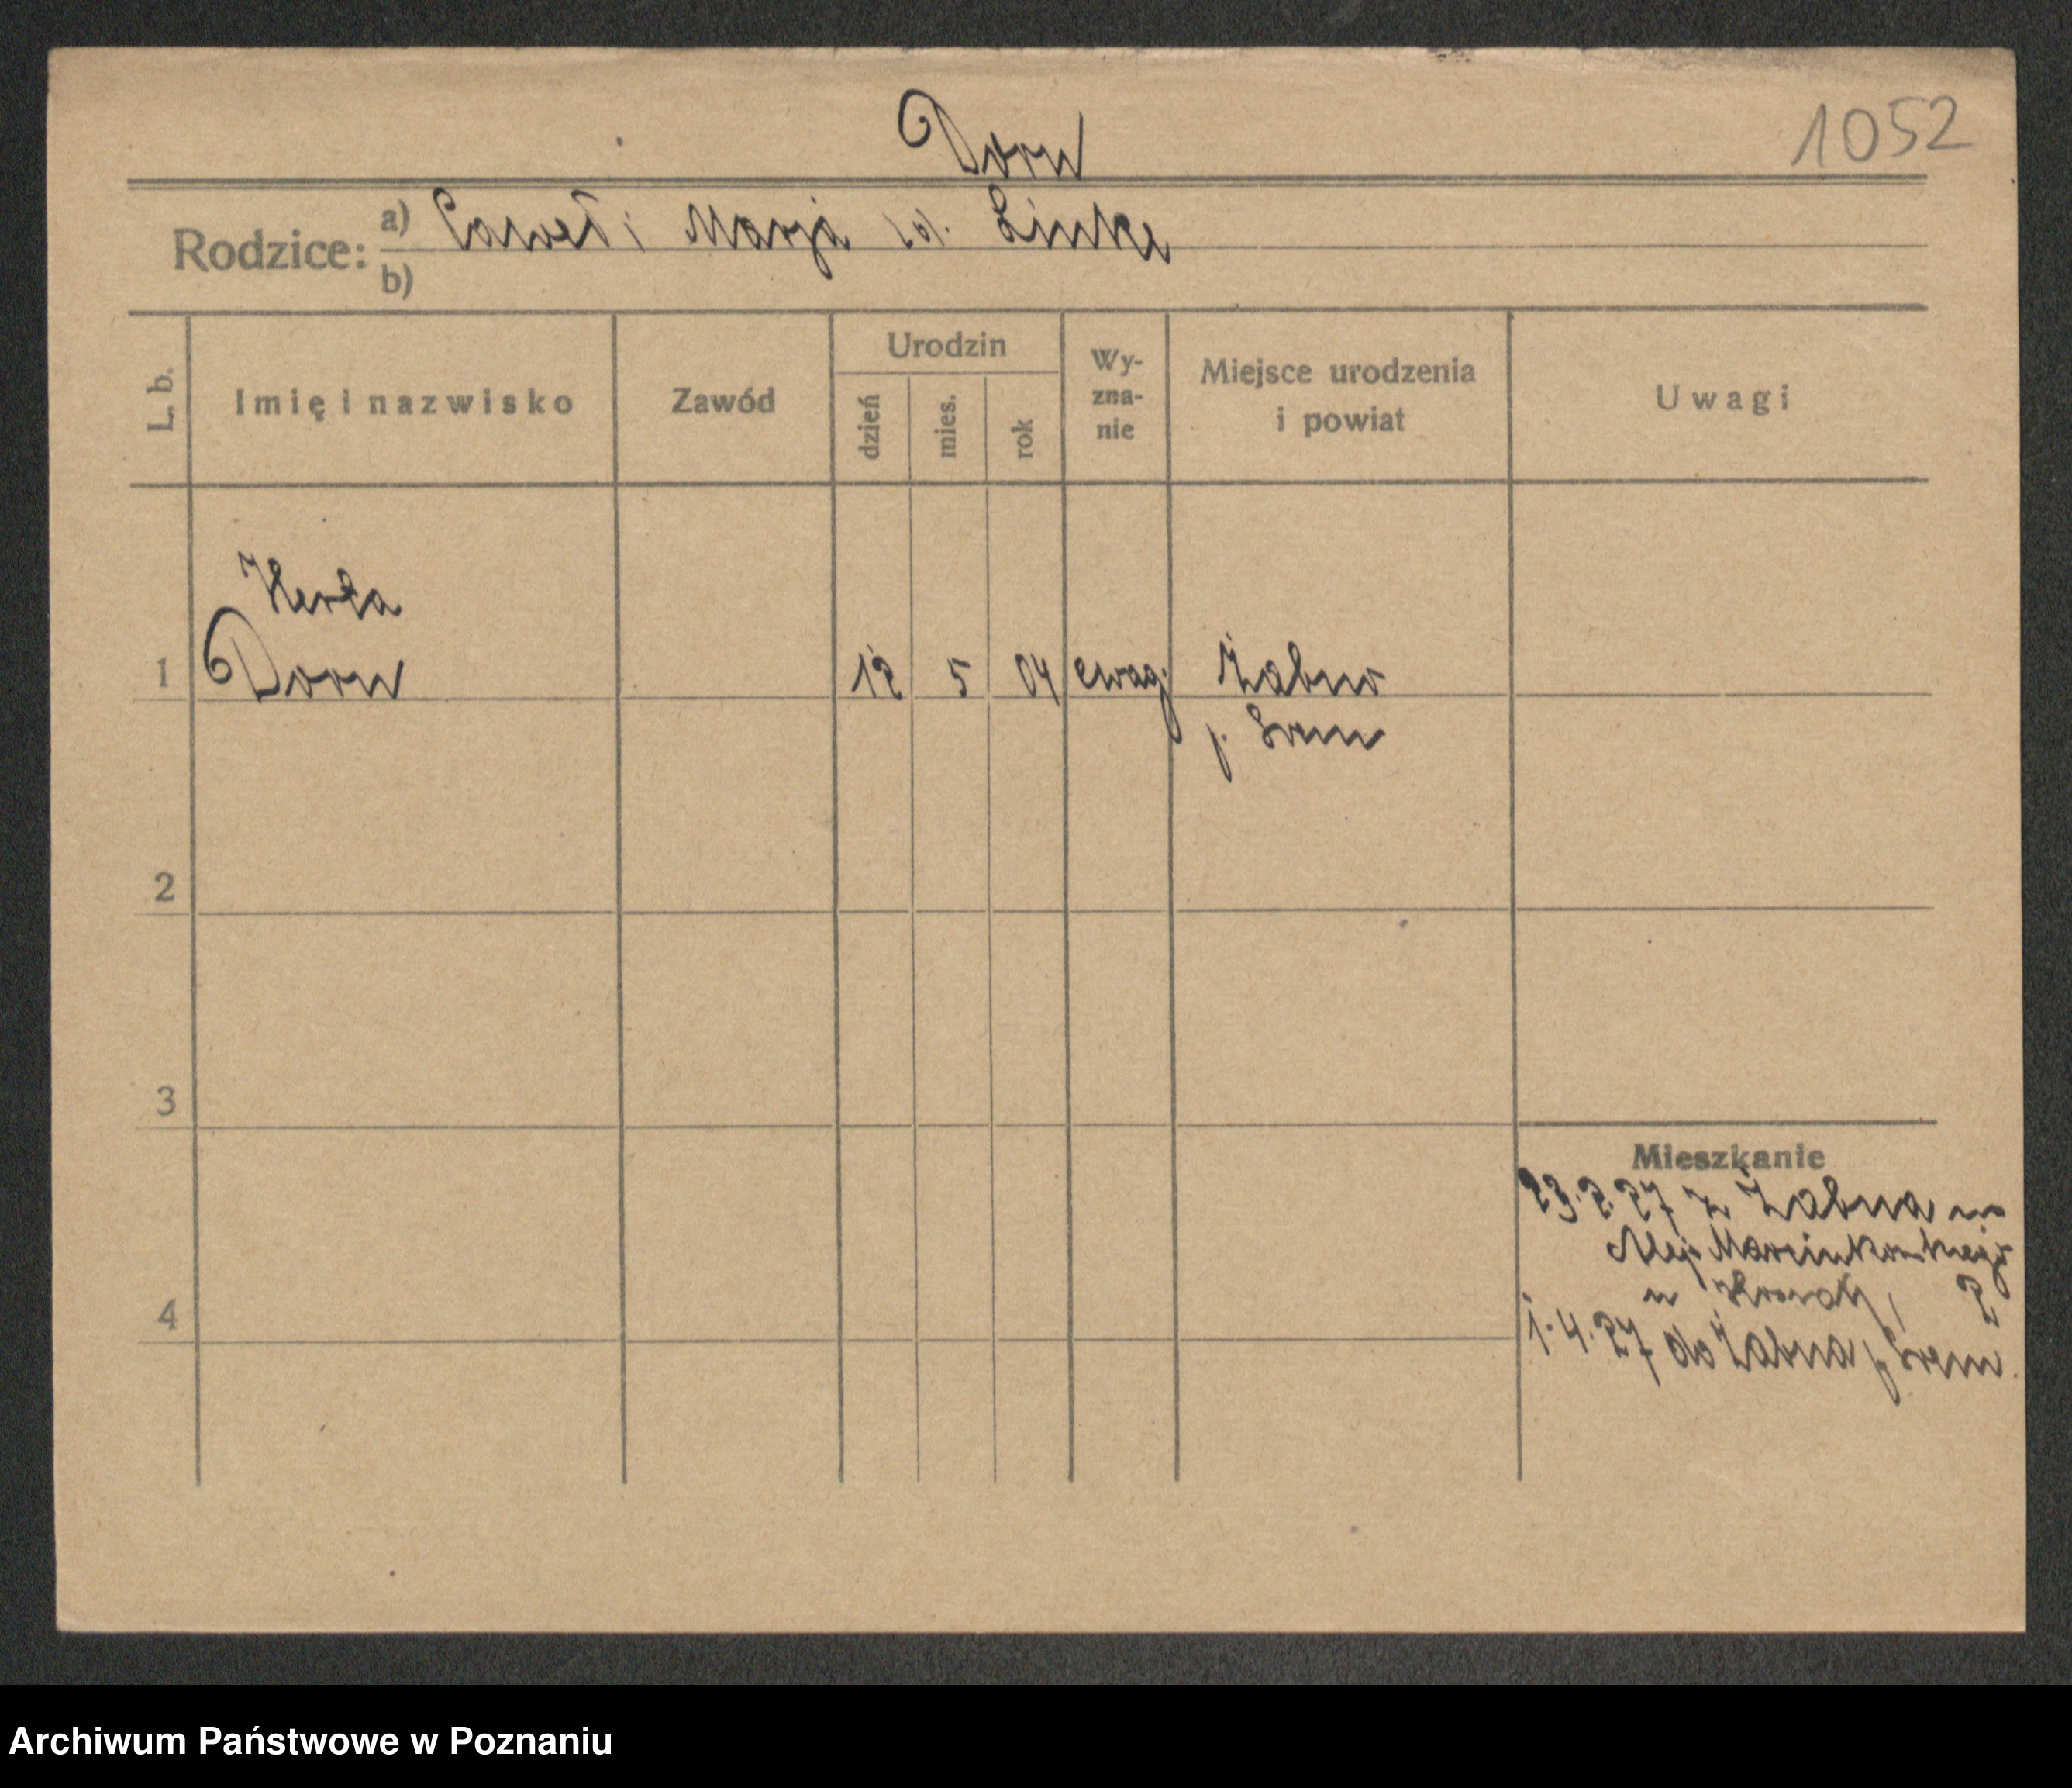 Dorn
1052
Rodzice: a) Paweł i Marja Linke
b)
L. b.
Imię i nazwisko
Zawód
Urodzin
dzień
mies.
rok
Wy-
zna-
nie
Miejsce urodzenia
i powiat
Uwagi
Herta
1 Dorn 12 5 04 ewag. Żabno
p. Srem
2
3
Mieszkanie
23.2.27 z Żabna
Alej Marcinkowskiego
2
4
1.4.27 do Żabna p. Srem.
Archiwum Państwowe w Poznaniu